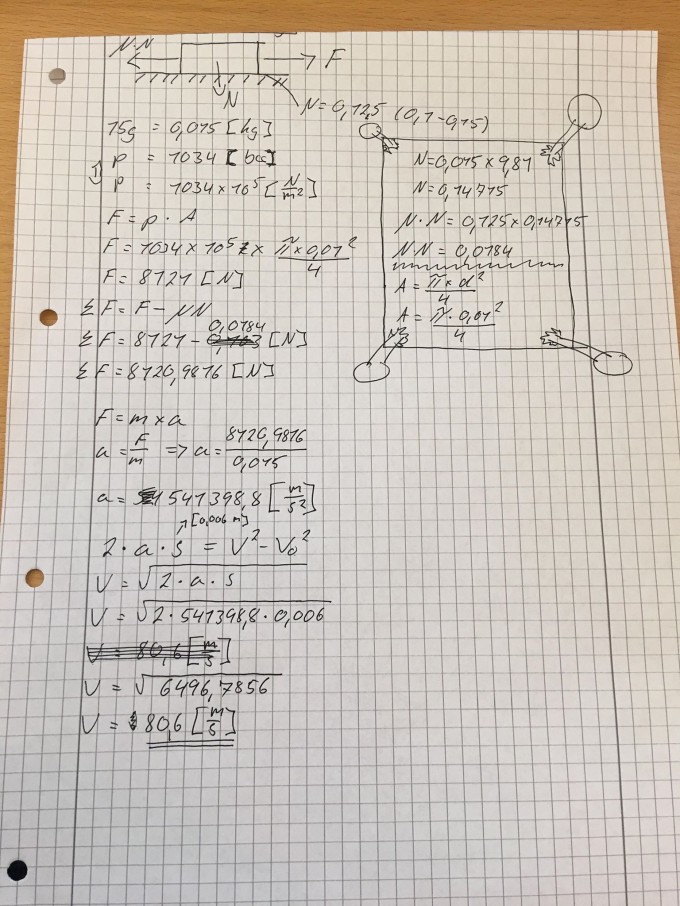 μ·N
F
N
μ = 0,125 (0,1-0,15)
15g = 0,015 [kg]
p = 1034 [bar]
p = 1034 × 10⁵ [N/m²]
F = p · A
F = 1034 × 10⁵ × π × 0,01² / 4
F = 8121 [N]
ΣF = F - μN
0,0184
ΣF = 8121 - [N]
ΣF = 8120,9816 [N]
N = 0,015 × 9,81
N = 0,14715
μ·N = 0,125 × 0,14715
μN = 0,0184
A = π × d² / 4
A = π · 0,01² / 4
F = m × a
a = F/m => a = 8120,9816 / 0,015
a = 541398,8 [m/s²]
[0,006 m]
2 · a · s = V² - V₀²
V = √2 · a · s
V = √2 · 541398,8 · 0,006
V = 80,6 [m/s]
V = √6496,7856
V = 80,6 [m/s]